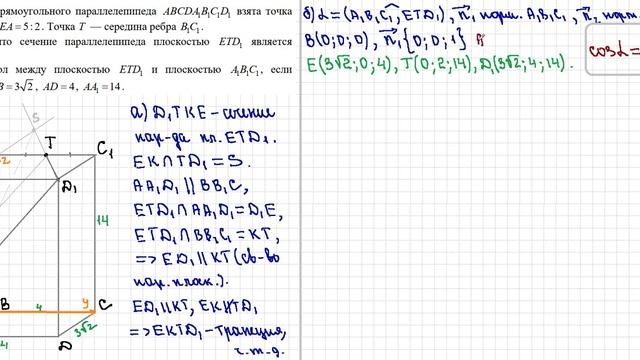 рямоугольного параллелепипеда ABCDA₁B₁C₁D₁ взята точка
EA = 5 : 2. Точка T — середина ребра B₁C₁.
что сечение параллелепипеда плоскостью ETD₁ является
ол между плоскостью ETD₁ и плоскостью A₁B₁C₁, если
B = 3√2, AD = 4, AA₁ = 14.
S
T
C₁
D₁
14
B
4
y
C
3√2
D
а) D₁TKE – сечение
пар-да пл. ETD₁.
EK∩TD₁ = S.
AA₁D₁ || BB₁C₁,
ETD₁∩AA₁D₁ = D₁E,
ETD₁∩BB₁C₁ = KT,
=> ED₁ || KT (св-во
пар. плоск.).
ED₁ || KT, EK∦TD₁
=> EKTD₁ – трапеция,
ч.т.д.
б) α = (A₁B₁C₁, ETD₁), n₁ норм. A₁B₁C₁, n₂ норм
B(0; 0; 0), n₁{0; 0; 1}
E(3√2; 0; 4), T(0; 2; 14), D₁(3√2; 4; 14).
cosα =